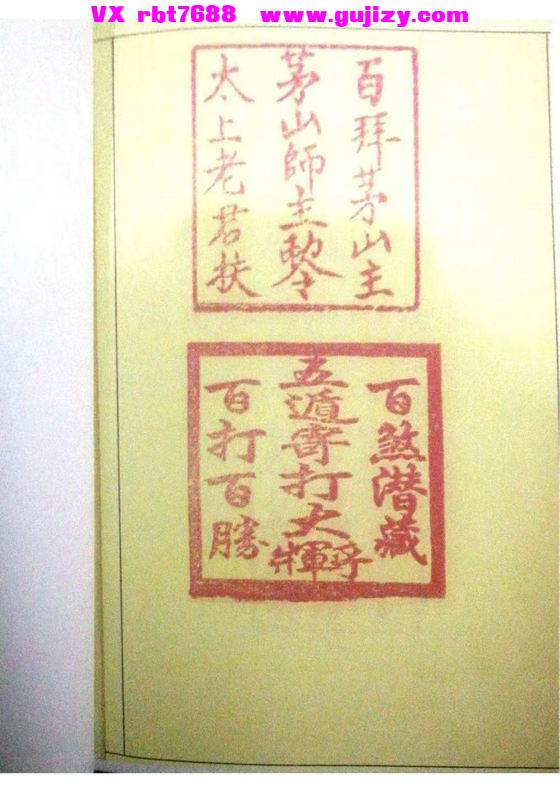 VX rbt7688 www.gujizy.com
百拜茅山主
茅山師主
太上老君扶
百煞潜藏
五遁寄打大
百打百勝